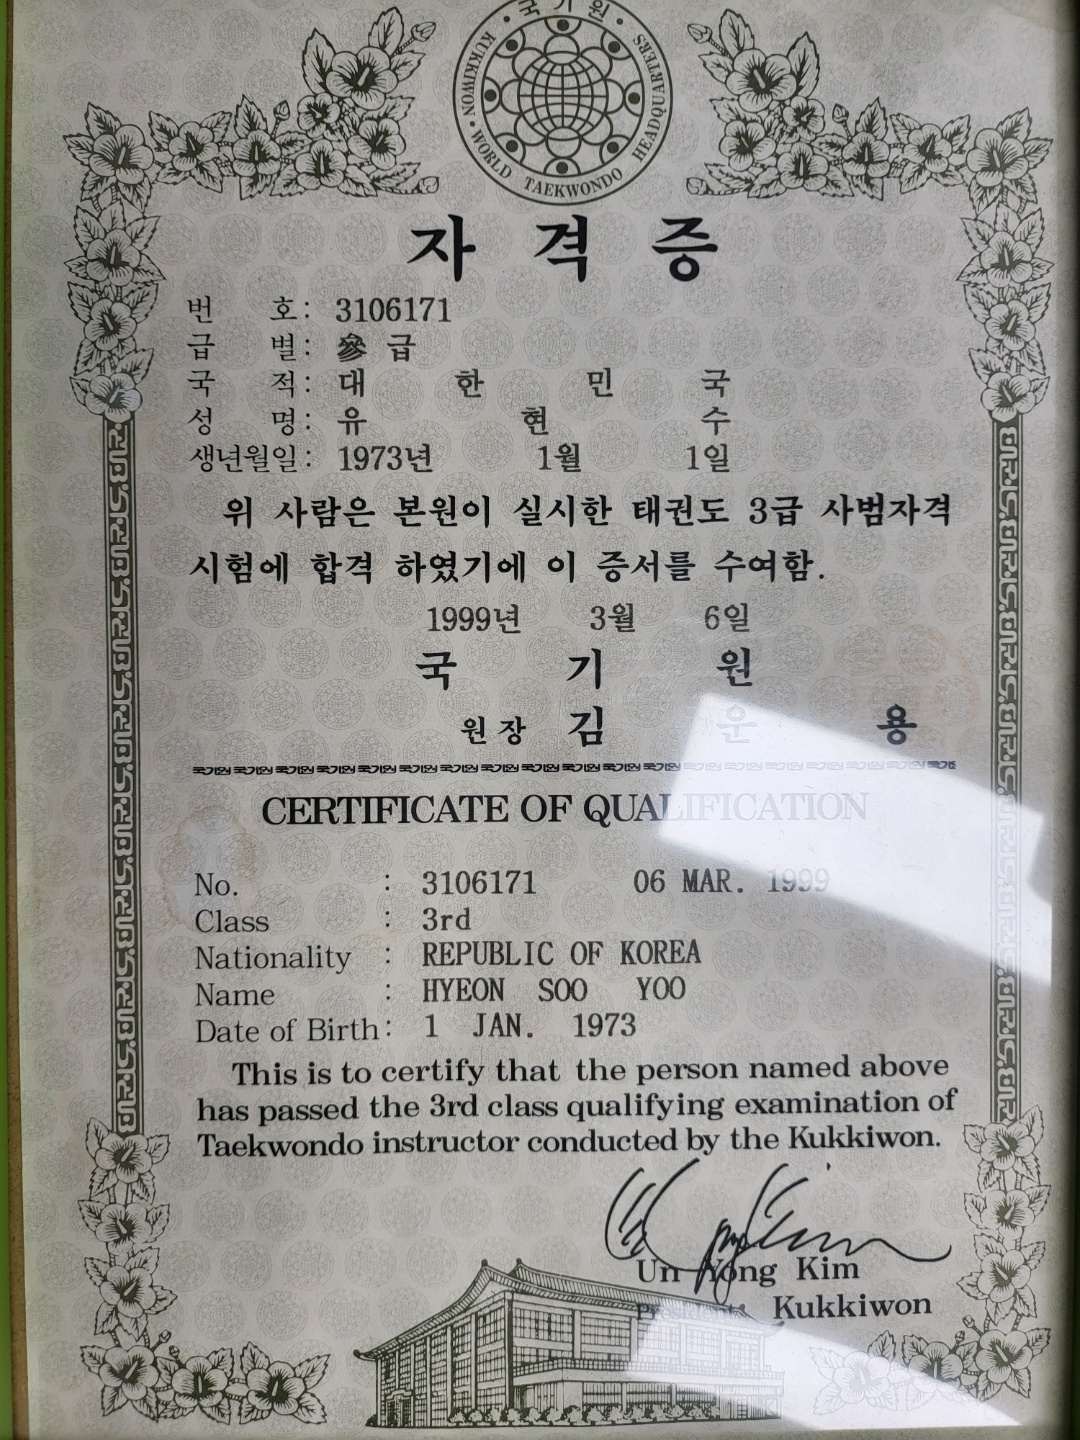 · 국기원 ·
KUKKIWON · WORLD TAEKWONDO HEADQUARTERS
자격증
번 호: 3106171
급 별: 參 급
국 적: 대 한 민 국
성 명: 유 현 수
생년월일: 1973년 1월 1일
위 사람은 본원이 실시한 태권도 3급 사범자격
시험에 합격 하였기에 이 증서를 수여함.
1999년 3월 6일
국 기 원
원장 김 운 용
국기원 국기원 국기원 국기원 국기원 국기원 국기원 국기원 국기원 국기원 국기원 국기원 국기원 국기원 국기원 국기원 국기원 국기원 국기원
CERTIFICATE OF QUALIFICATION
No. : 3106171 06 MAR. 1999
Class : 3rd
Nationality : REPUBLIC OF KOREA
Name : HYEON SOO YOO
Date of Birth : 1 JAN. 1973
This is to certify that the person named above
has passed the 3rd class qualifying examination of
Taekwondo instructor conducted by the Kukkiwon.
Un Yong Kim
President: Kukkiwon